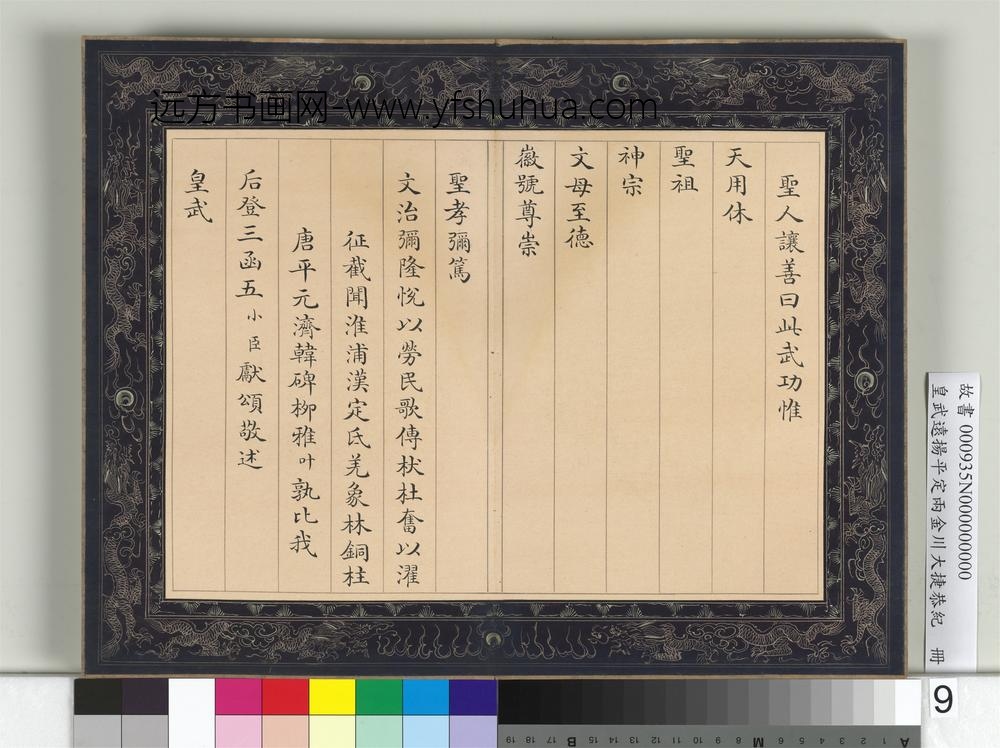 远方书画网-www.yfshuhua.com
聖人讓善曰此武功惟
天用休
聖祖
神宗
文母至德
徽號尊崇
聖孝彌篤
文治彌隆悅以勞民歌傳杕杜奮以濯
征截聞淮浦漢定氐羌象林銅柱
唐平元濟韓碑柳雅叶孰比我
后登三函五小臣獻頌敬述
皇武
故書 000935N000000000
皇武遠揚平定兩金川大捷恭紀 冊
9
A 1 2 3 4 5 6 M 8 9 10 11 12 13 14 15 B 17 18 19